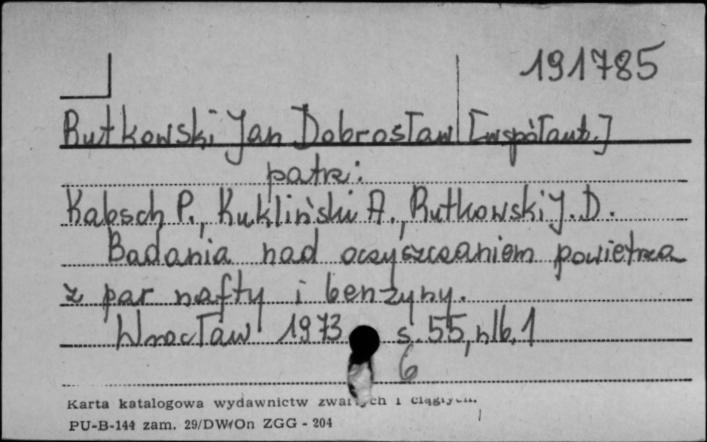 191785
Rutkowski Jan Dobrosław [współaut.]
patrz:
Kabsch P., Kukliński A., Rutkowski J. D.
Badania nad oczyszczaniem powietrza
z par nafty i benzyny.
Wrocław 1973 s. 55, nlb. 1
6
Karta katalogowa wydawnictw zwartych i ciągłych.
PU-B-144 zam. 29/DWrOn ZGG - 204